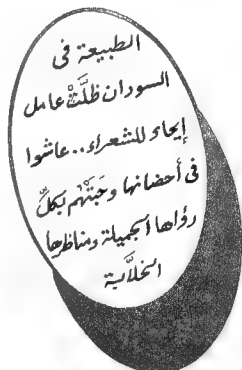 الطبيعة فى
السودان ظلَّتْ عامل
إيحاء للشعراء.. عاشوا
فى أحضانها وحَبَتْهم بكلِّ
رؤاها الجميلة ومناظرها
الخلاَّبة